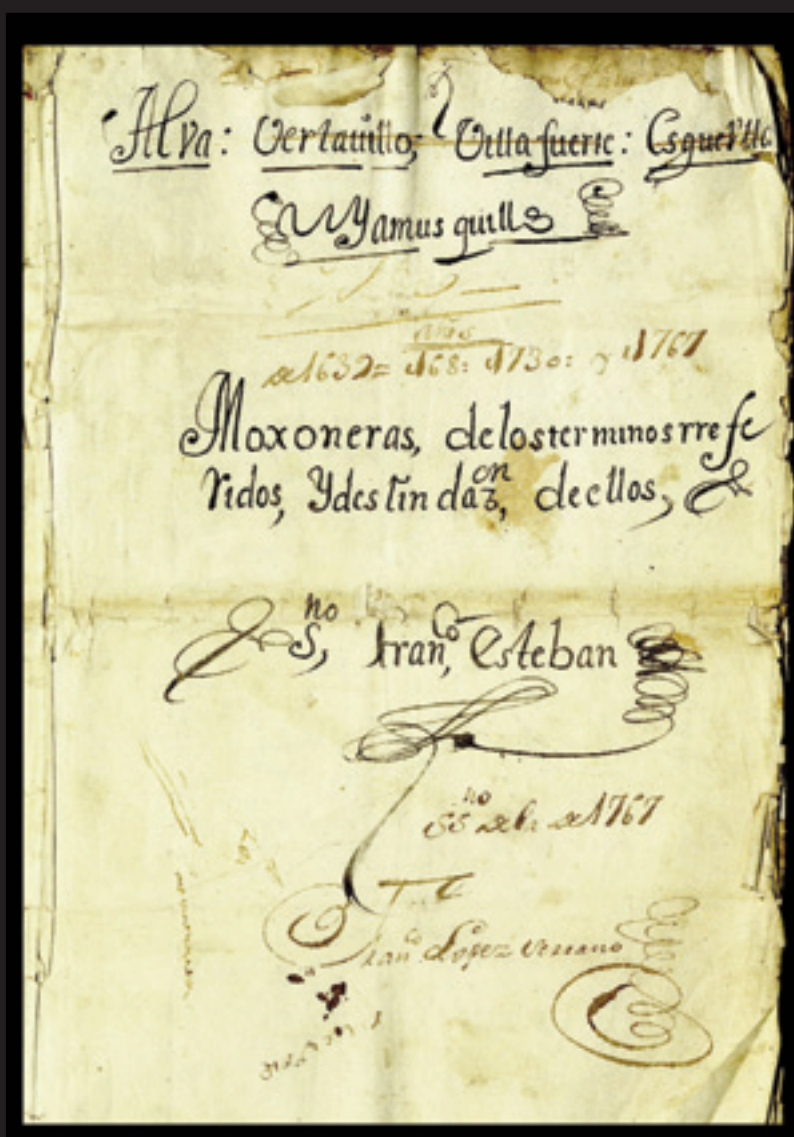 Alva: Vertavillo; Villafuerte: Esguevilla
Yamusquillo
años
de 1632= 168: 1730: y 1767
Moxoneras, delosterminosrrefe
ridos, Ydeslindazon, deellos, &
Sno, Franco, Esteban
SSno de la de 1767
Franco Lopez Serrano